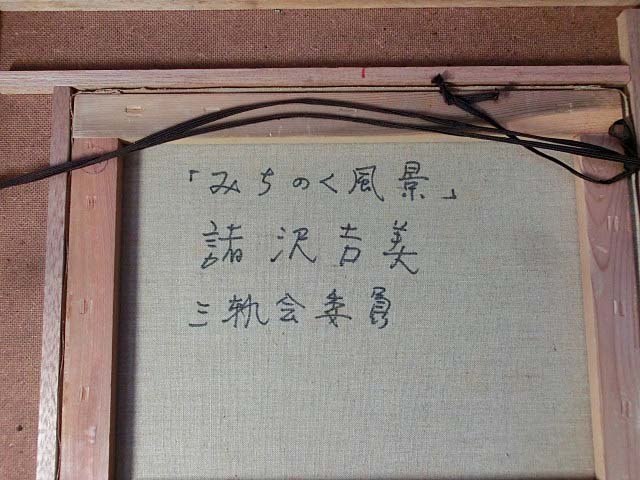 「みちのく風景」
諸沢吉美
三軌会委員